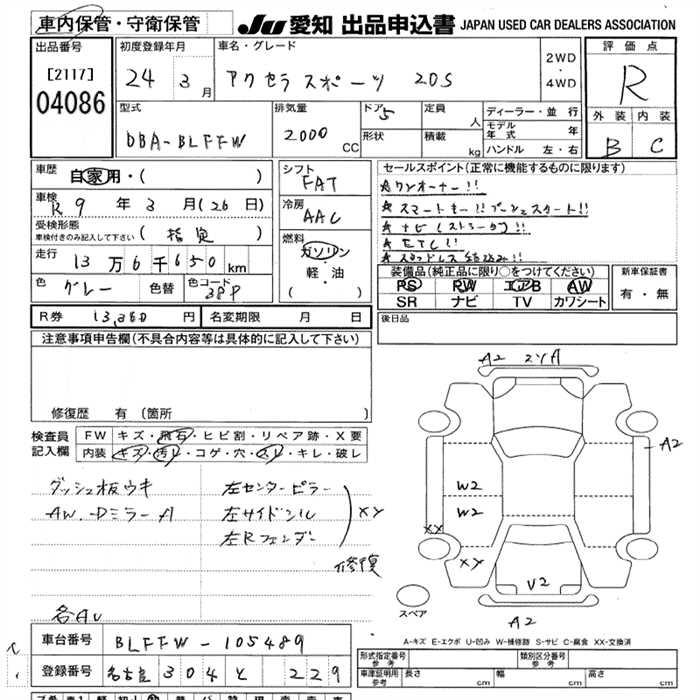 車内保管・守衛保管
JU 愛知 出品申込書 JAPAN USED CAR DEALERS ASSOCIATION
出品番号
[2117]
04086
初度登録年月
24 3月
車名・グレード
アクセラスポーツ 20S
2WD
・
4WD
評価点
R
外装 内装
B C
型式
DBA-BLFFW
排気量
2000 CC
ドア 5
形状
定員 人
積載 kg
ディーラー・並行
モデル年式 年
ハンドル 左・右
車歴
自家用・( )
車検
R9年3月(26日)
受検形態
車検付きのみ記入して下さい ( 指定 )
走行
13万6千650km
色 グレー 色替 色コード 38P
シフト
FAT
冷房
AAC
燃料
ガソリン
・
軽・油
( )
セールスポイント(正常に機能するものに限ります)
☆ワンオーナー!!
☆スマートキー!!プッシュスタート!!
☆ナビ
☆ETC!!
☆スタッドレス積込み!!
装備品(純正品に限り○をつけてください)
PS PW エアB AW
SR ナビ TV カワシート
新車保証書
有・無
R券 円 名変期限 月 日
後日品
注意事項申告欄(不具合内容等は具体的に記入して下さい)
修復歴 有(箇所
検査員記入欄
FW キズ・飛石・ヒビ割・リペア跡・X要
内装 キズ・汚レ・コゲ・穴・スレ・キレ・破レ
ダッシュ板ウキ
AW.DミラーA
左センターピラー
左サイドシル
左Rフェンダー
XY
修復
各AU
A2
A2
W2
W2
XX
XY
V2
A2
スペア
A-キズ E-エクボ U-凹み W-補修跡 S-サビ C-腐食 XX-交換済
車台番号 BLFFW-105489
登録番号 名古屋 304 と 229
形式指定番号
参考
類別区分番号
参考
車庫証明用
参考
長さ cm 幅 cm 高さ cm